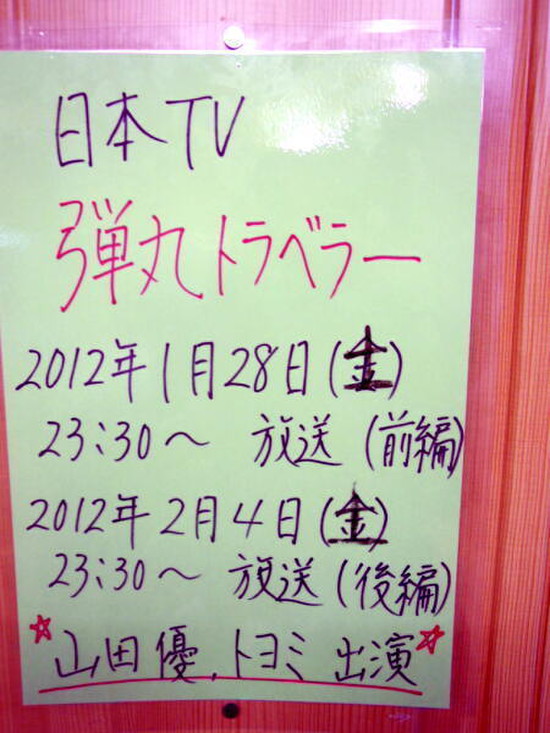 日本TV
弾丸トラベラー
2012年1月28日(金)
23:30〜 放送(前編)
2012年2月4日(金)
23:30〜 放送(後編)
☆山田優,トヨミ出演☆